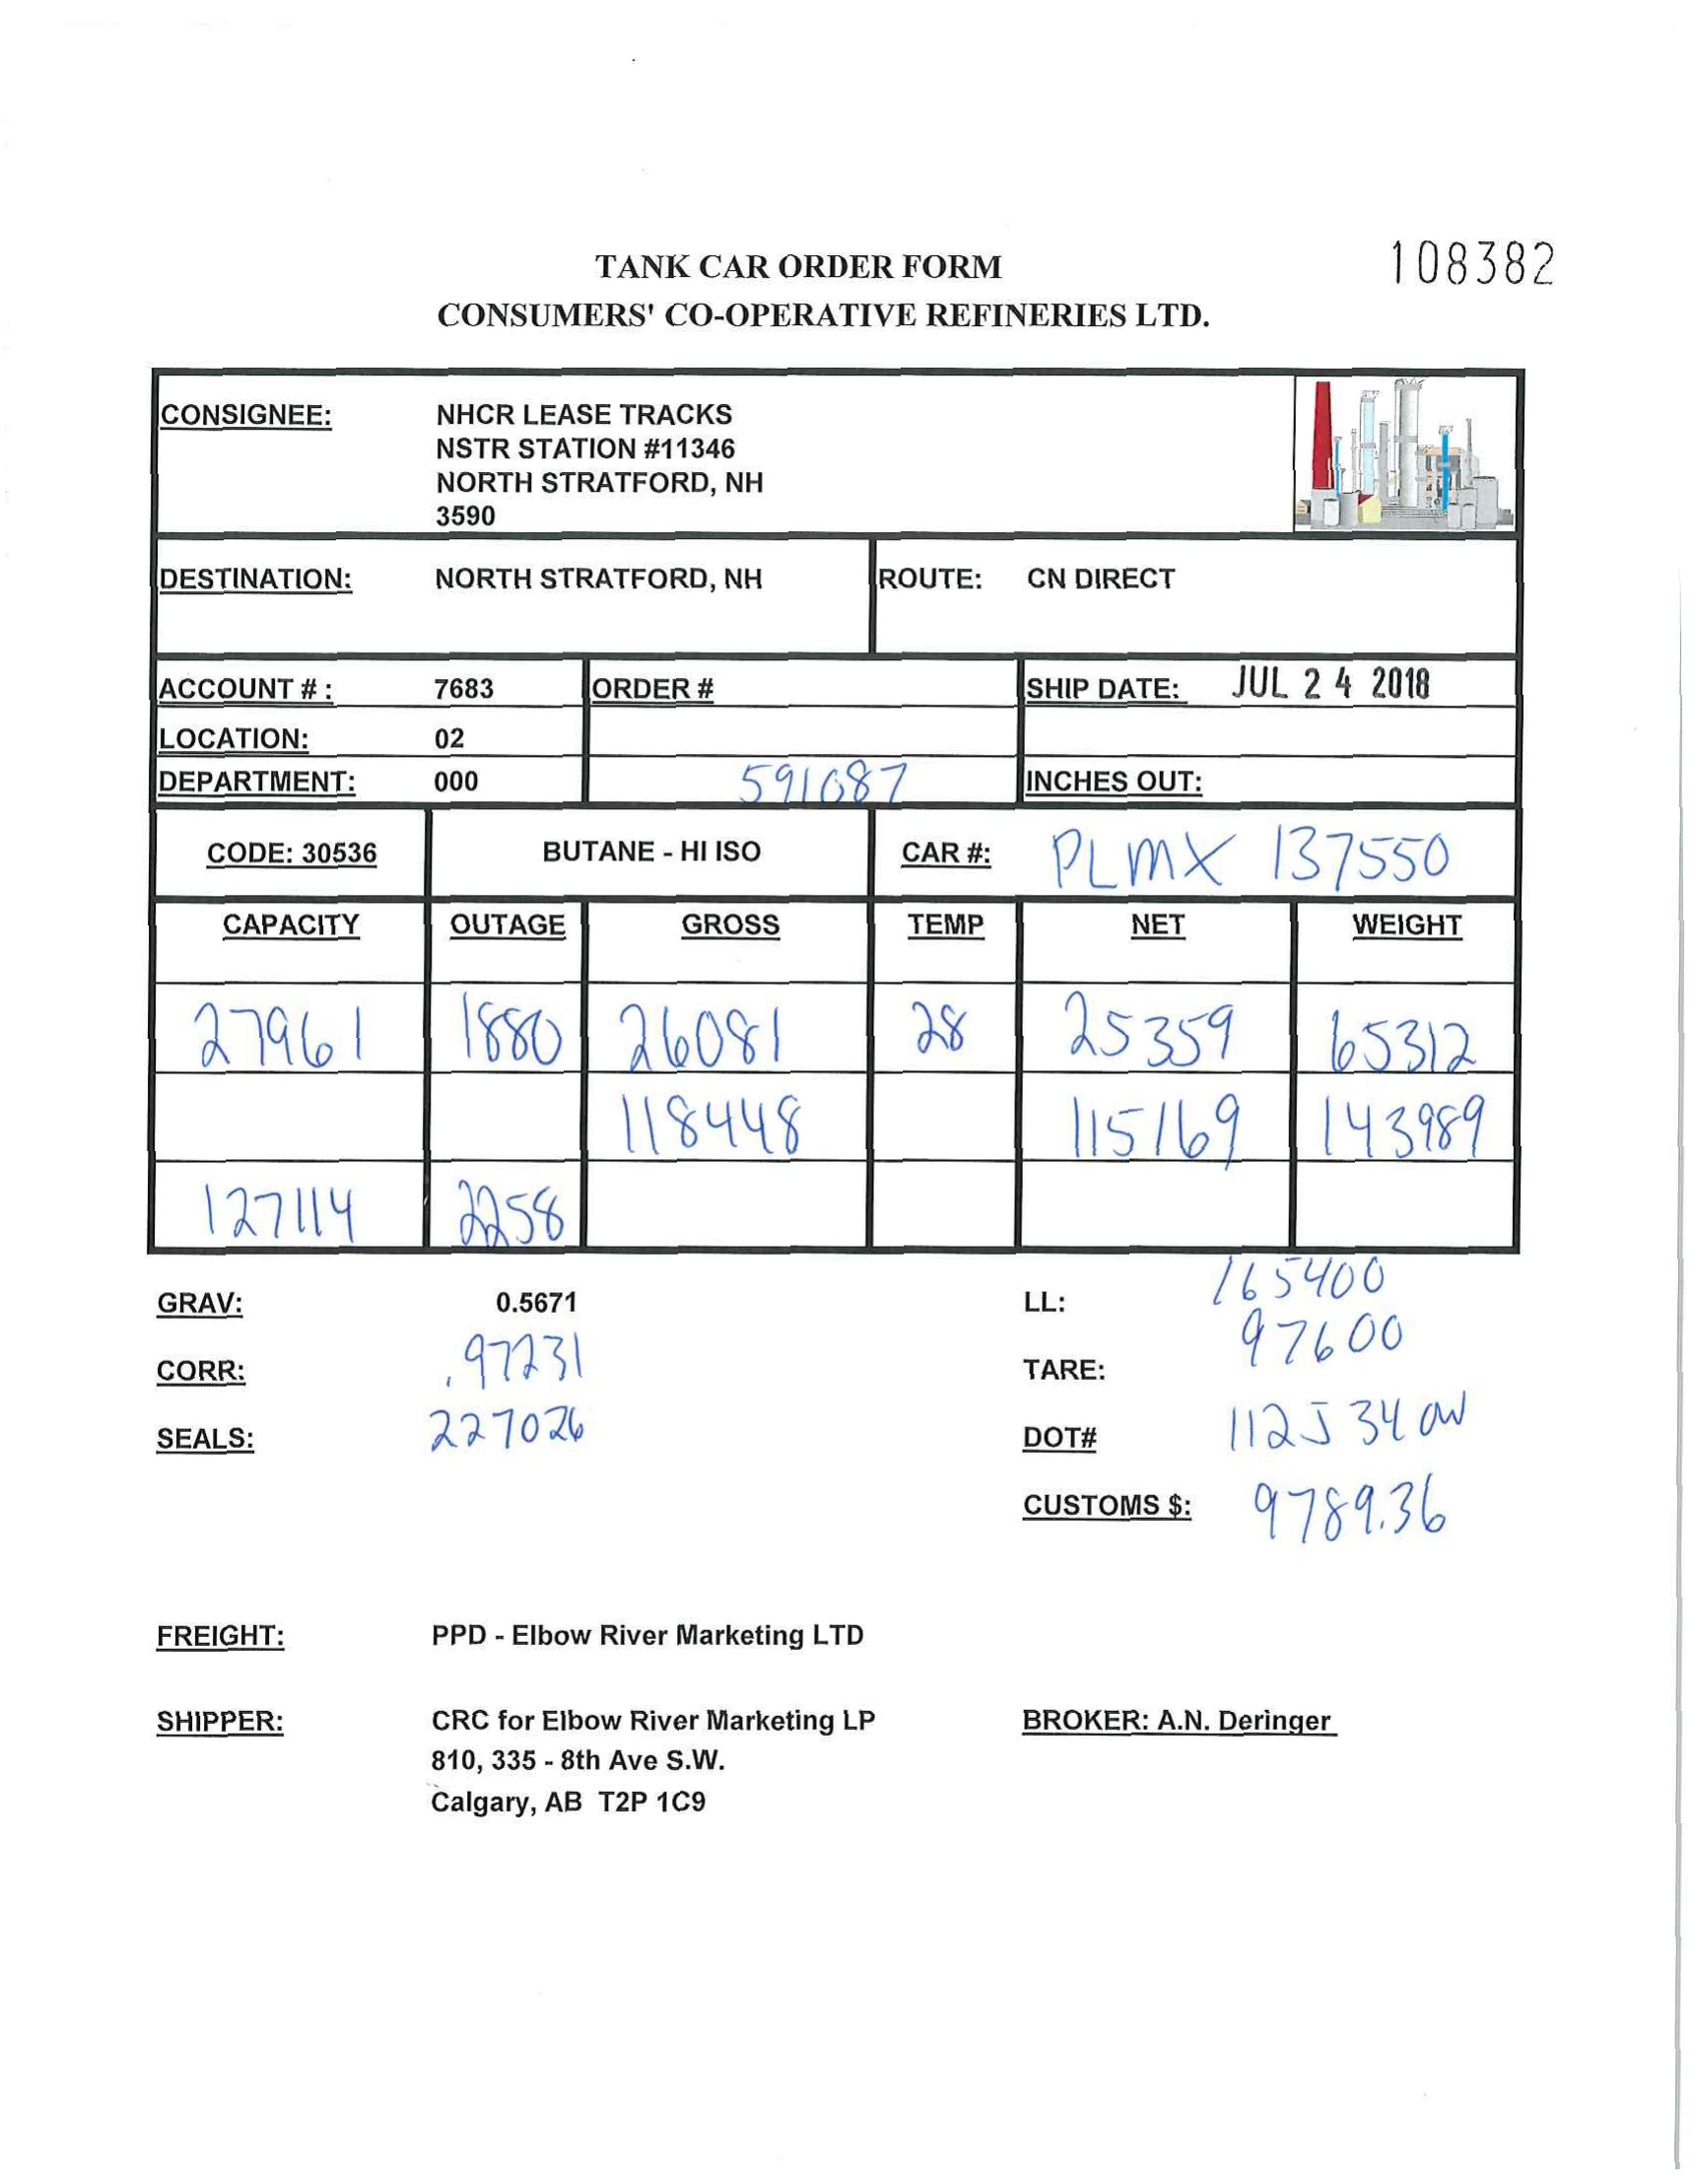 108382
TANK CAR ORDER FORM
CONSUMERS' CO-OPERATIVE REFINERIES LTD.
CONSIGNEE: NHCR LEASE TRACKS
NSTR STATION #11346
NORTH STRATFORD, NH
3590
DESTINATION: NORTH STRATFORD, NH ROUTE: CN DIRECT
ACCOUNT # : 7683 ORDER # SHIP DATE: JUL 24 2018
LOCATION: 02
DEPARTMENT: 000 591087 INCHES OUT:
CODE: 30536 BUTANE - HI ISO CAR #: PLMX 137550
CAPACITY OUTAGE GROSS TEMP NET WEIGHT
27961 1880 26081 28 25359 65312
118448 115169 143989
127114 2258
GRAV: 0.5671 LL: 165400
CORR: .97231 TARE: 97600
SEALS: 227026 DOT# 112J340W
CUSTOMS $: 9789.36
FREIGHT: PPD - Elbow River Marketing LTD
SHIPPER: CRC for Elbow River Marketing LP BROKER: A.N. Deringer
810, 335 - 8th Ave S.W.
Calgary, AB T2P 1C9